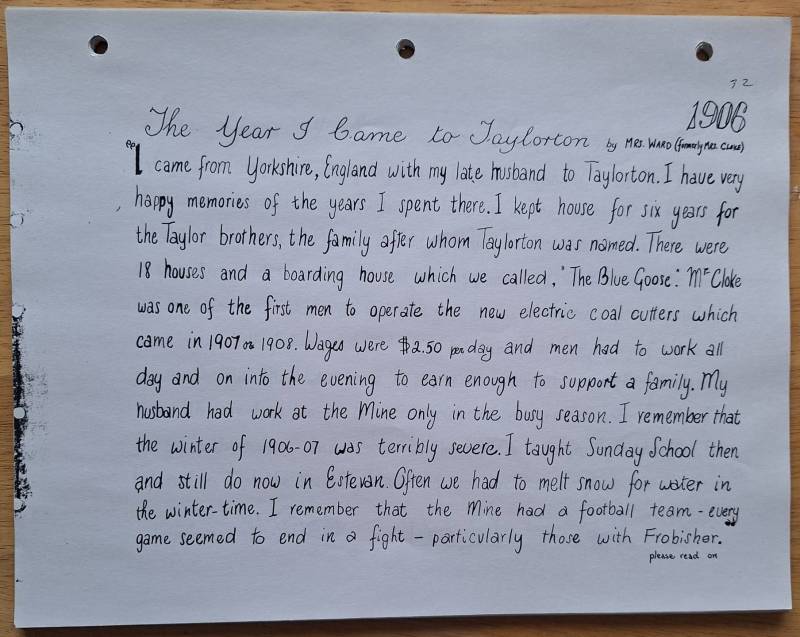 32
1906
The Year I Came to Taylorton by MRS. WARD (formerly Mrs. Cloke)
"I came from Yorkshire, England with my late husband to Taylorton. I have very
happy memories of the years I spent there. I kept house for six years for
the Taylor brothers, the family after whom Taylorton was named. There were
18 houses and a boarding house which we called, "The Blue Goose". Mr Cloke
was one of the first men to operate the new electric coal cutters which
came in 1907 or 1908. Wages were $2.50 per day and men had to work all
day and on into the evening to earn enough to support a family. My
husband had work at the Mine only in the busy season. I remember that
the winter of 1906-07 was terribly severe. I taught Sunday School then
and still do now in Estevan. Often we had to melt snow for water in
the winter-time. I remember that the Mine had a football team - every
game seemed to end in a fight - particularly those with Frobisher.
please read on